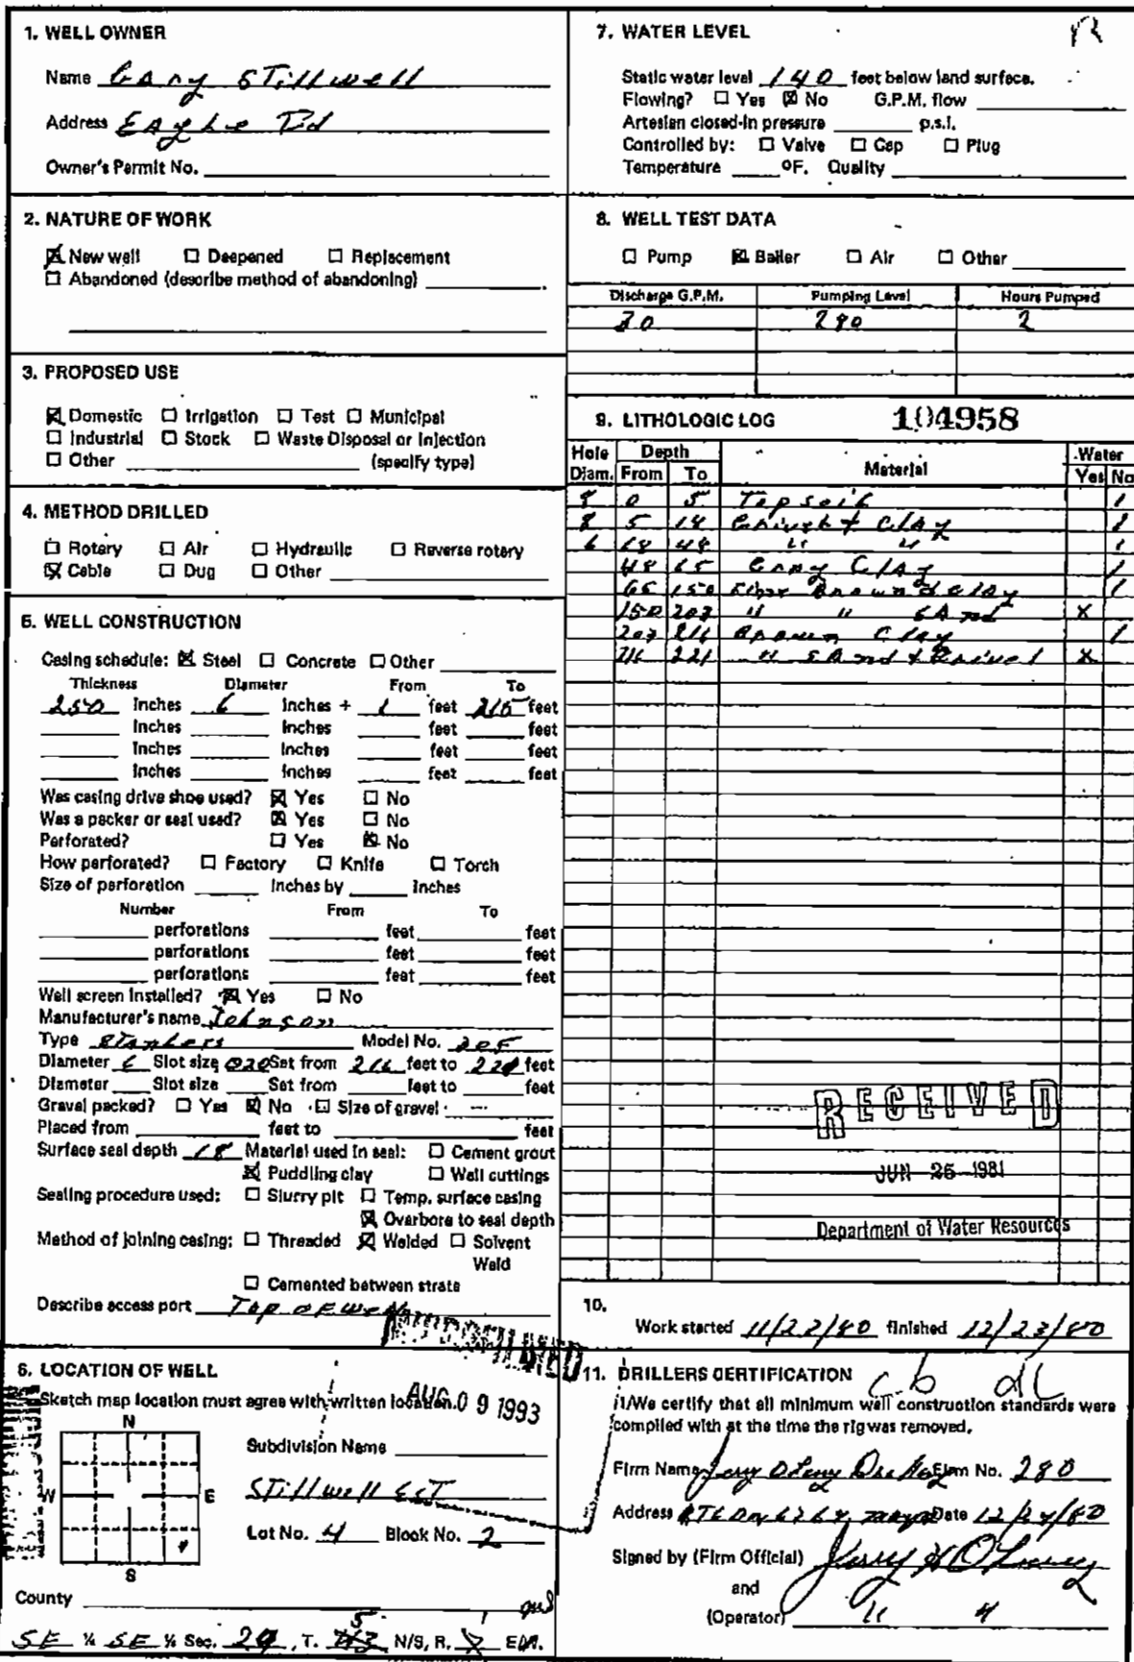 1. WELL OWNER
Name Gary Stillwell
Address Eagle Rd
Owner's Permit No.
2. NATURE OF WORK
☒ New well ☐ Deepened ☐ Replacement
☐ Abandoned (describe method of abandoning)
3. PROPOSED USE
☒ Domestic ☐ Irrigation ☐ Test ☐ Municipal
☐ Industrial ☐ Stock ☐ Waste Disposal or Injection
☐ Other (specify type)
4. METHOD DRILLED
☐ Rotary ☐ Air ☐ Hydraulic ☐ Reverse rotary
☒ Cable ☐ Dug ☐ Other
5. WELL CONSTRUCTION
Casing schedule: ☒ Steel ☐ Concrete ☐ Other
Thickness Diameter From To
250 inches 6 inches + 1 feet 215 feet
inches inches feet feet
inches inches feet feet
inches inches feet feet
Was casing drive shoe used? ☒ Yes ☐ No
Was a packer or seal used? ☒ Yes ☐ No
Perforated? ☐ Yes ☒ No
How perforated? ☐ Factory ☐ Knife ☐ Torch
Size of perforation inches by inches
Number From To
perforations feet feet
perforations feet feet
perforations feet feet
Well screen installed? ☒ Yes ☐ No
Manufacturer's name Johnson
Type Stanless Model No.
Diameter 6 Slot size 020 Set from 216 feet to 221 feet
Diameter Slot size Set from feet to feet
Gravel packed? ☐ Yes ☒ No ☐ Size of gravel
Placed from feet to feet
Surface seal depth 18 Material used in seal: ☐ Cement grout
☒ Puddling clay ☐ Well cuttings
Sealing procedure used: ☐ Slurry pit ☐ Temp. surface casing
☒ Overbore to seal depth
Method of joining casing: ☐ Threaded ☒ Welded ☐ Solvent
Weld
☐ Cemented between strata
Describe access port Top of well
6. LOCATION OF WELL
Sketch map location must agree with written location.
AUG 09 1993
N
W E
S
Subdivision Name
Stillwell Est
Lot No. 4 Block No. 2
County
SE ¼ SE ¼ Sec. 29, T. 5 N/S, R. E/W.
7. WATER LEVEL
Static water level 140 feet below land surface.
Flowing? ☐ Yes ☒ No G.P.M. flow
Artesian closed-in pressure p.s.i.
Controlled by: ☐ Valve ☐ Cap ☐ Plug
Temperature °F. Quality
8. WELL TEST DATA
☐ Pump ☒ Bailer ☐ Air ☐ Other
Discharge G.P.M. Pumping Level Hours Pumped
20 2
9. LITHOLOGIC LOG 104958
Hole Diam. Depth Material Water
From To Yes No
8 0 5 Topsoil
8 5 18 Gravel + Clay
6 18 48 " "
48 65 Gray Clay
65 150 Brown Clay
150 203 " " Sand X
203 216 Brown Clay
216 221 " Sand + Gravel X
RECEIVED
JUN 26 1981
Department of Water Resources
10.
Work started 11/22/80 finished 12/23/80
11. DRILLERS CERTIFICATION
I/We certify that all minimum well construction standards were
complied with at the time the rig was removed.
Firm Name Firm No. 280
Address Date 12/24/80
Signed by (Firm Official)
and
(Operator) " "